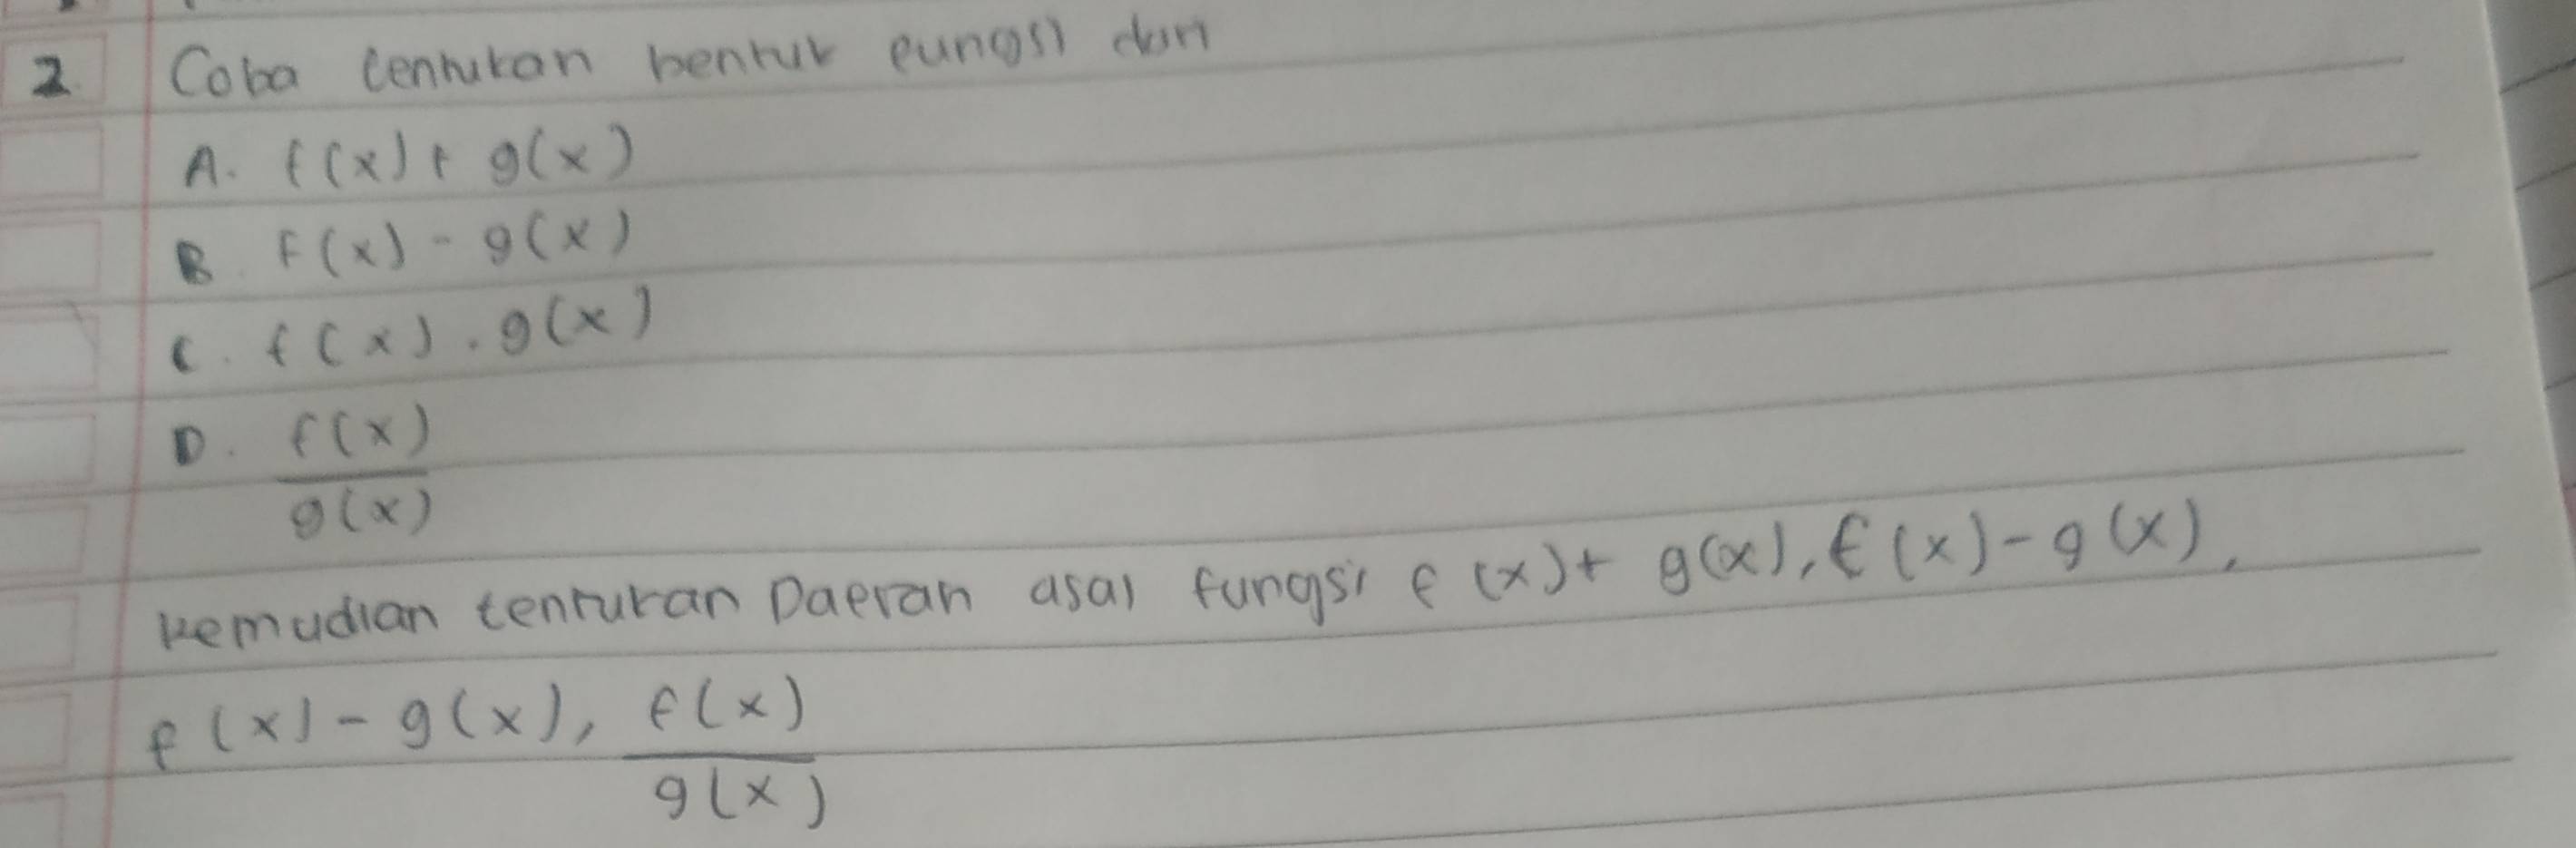 2. Coba tentukan bentuk fungsi dari
A. f(x) + g(x)
B. f(x) - g(x)
C. f(x) . g(x)
D. f(x)
g(x)
kemudian tentukan Daerah asal fungsi f(x) + g(x), f(x) - g(x),
f(x) - g(x), f(x)
g(x)